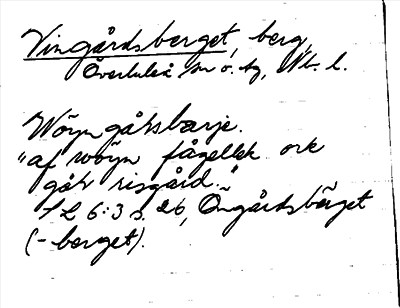 Vingårdsberget, berg,
Överluleå sn o. hg, Nb. l.
Wöyngåtsbarje.
"af wöyn fågellek ock
gåt risgård."
SL 6:3 s. 26, Öngårdsbärget
(-berget).